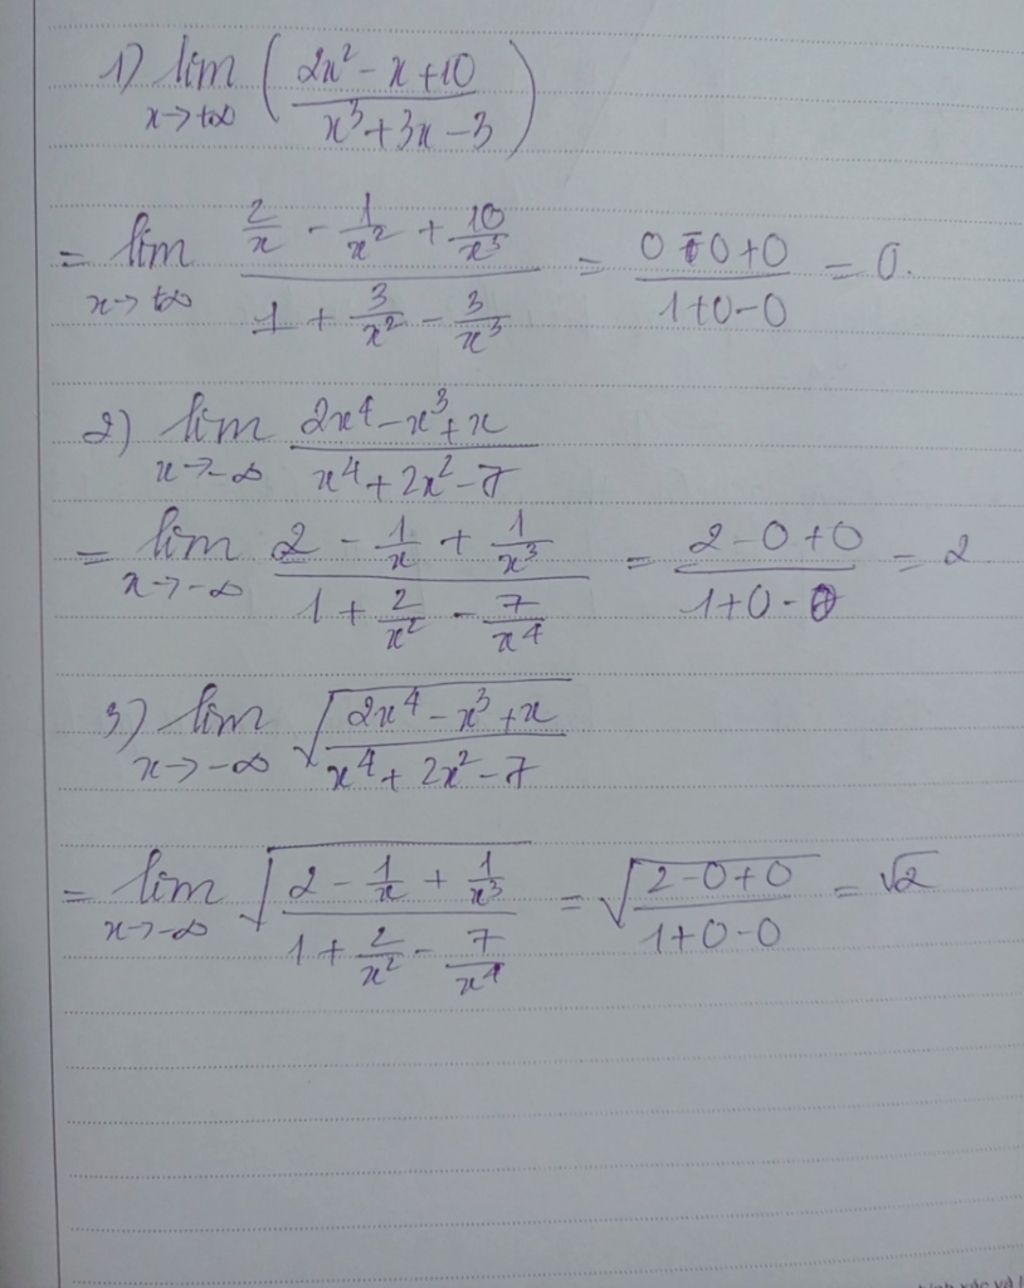 1) lim x→+∞ ( (2x² - x + 10) / (x³ + 3x - 3) )
= lim x→+∞ (2/x - 1/x² + 10/x³) / (1 + 3/x² - 3/x³) = (0 - 0 + 0) / (1 + 0 - 0) = 0.
2) lim x→-∞ (2x⁴ - x³ + x) / (x⁴ + 2x² - 7)
= lim x→-∞ (2 - 1/x + 1/x³) / (1 + 2/x² - 7/x⁴) = (2 - 0 + 0) / (1 + 0 - 0) = 2
3) lim x→-∞ √((2x⁴ - x³ + x) / (x⁴ + 2x² - 7))
= lim x→-∞ √((2 - 1/x + 1/x³) / (1 + 2/x² - 7/x⁴)) = √((2 - 0 + 0) / (1 + 0 - 0)) = √2